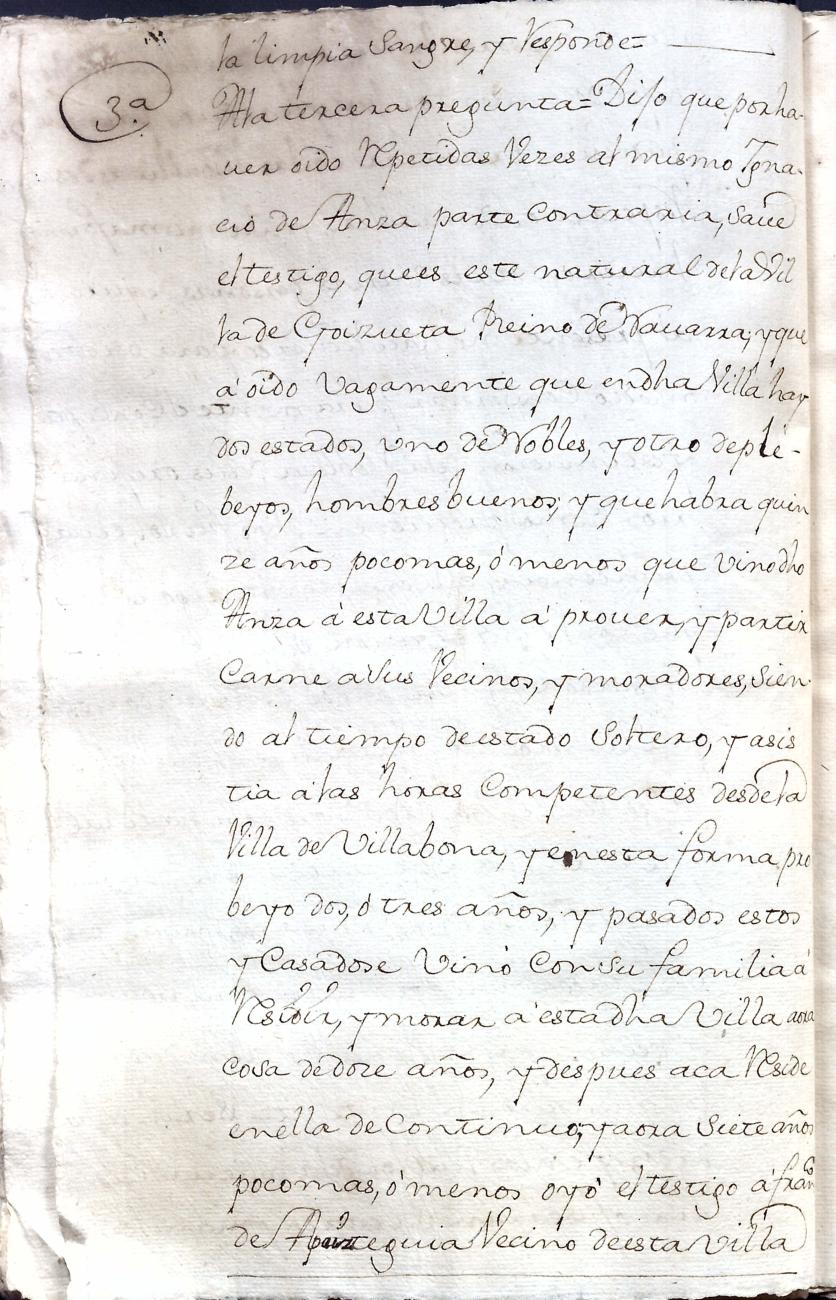 la limpia Sangre, y Responde=
3.a
A la tercera pregunta= Dijo que por ha-
uer oido Repetidas Vezes al mismo Igna-
cio de Anza parte Contraria, Saue
el testigo, que es este natural de la Vil
la de Goizueta Reino de Nauarra; y que
á oido Vagamente que en dha Villa hay
dos estados, uno de Nobles, y otro de ple-
beyos, hombres buenos; y que habra quin
ze años poco mas, ó menos que vino dho
Anza á esta Villa á prouer, y partir
Carne a Sus Vecinos, y moradores, Sien-
do al tiempo de estado Soltero, y asis
tia a las horas Competentes desde la
Villa de Villabona, y en esta forma pro
beyo dos, ó tres años, y pasados estos
y Casadose Vinó Con Su familia á
Residir, y morar á esta dha Villa aora
Cosa de doze años, y despues aca Reside
en ella de Continuo; y aora Siete años
poco mas, ó menos oyó el testigo á fran
de Vecino de esta Villa